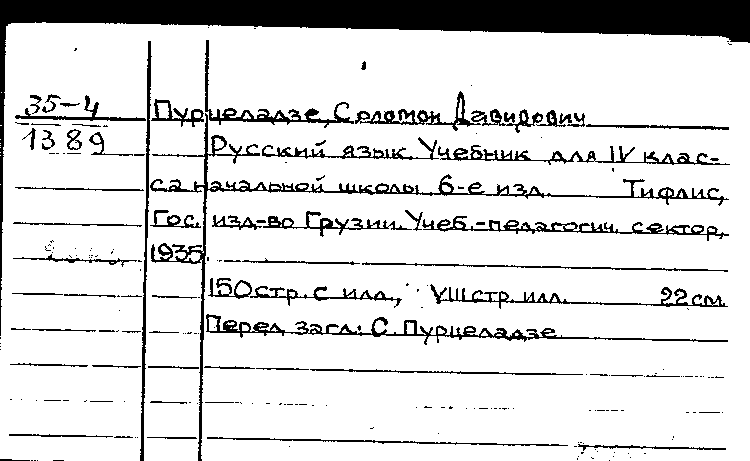 35-4
1389
Пурцеладзе, Соломон Давидович
Русский язык. Учебник для IV клас-
са начальной школы. 6-е изд. Тифлис,
Гос. изд-во Грузии. Учеб.-педагогич. сектор,
1935.
150 стр. с илл., VIII стр. илл. 22 см.
Перед загл: С. Пурцеладзе